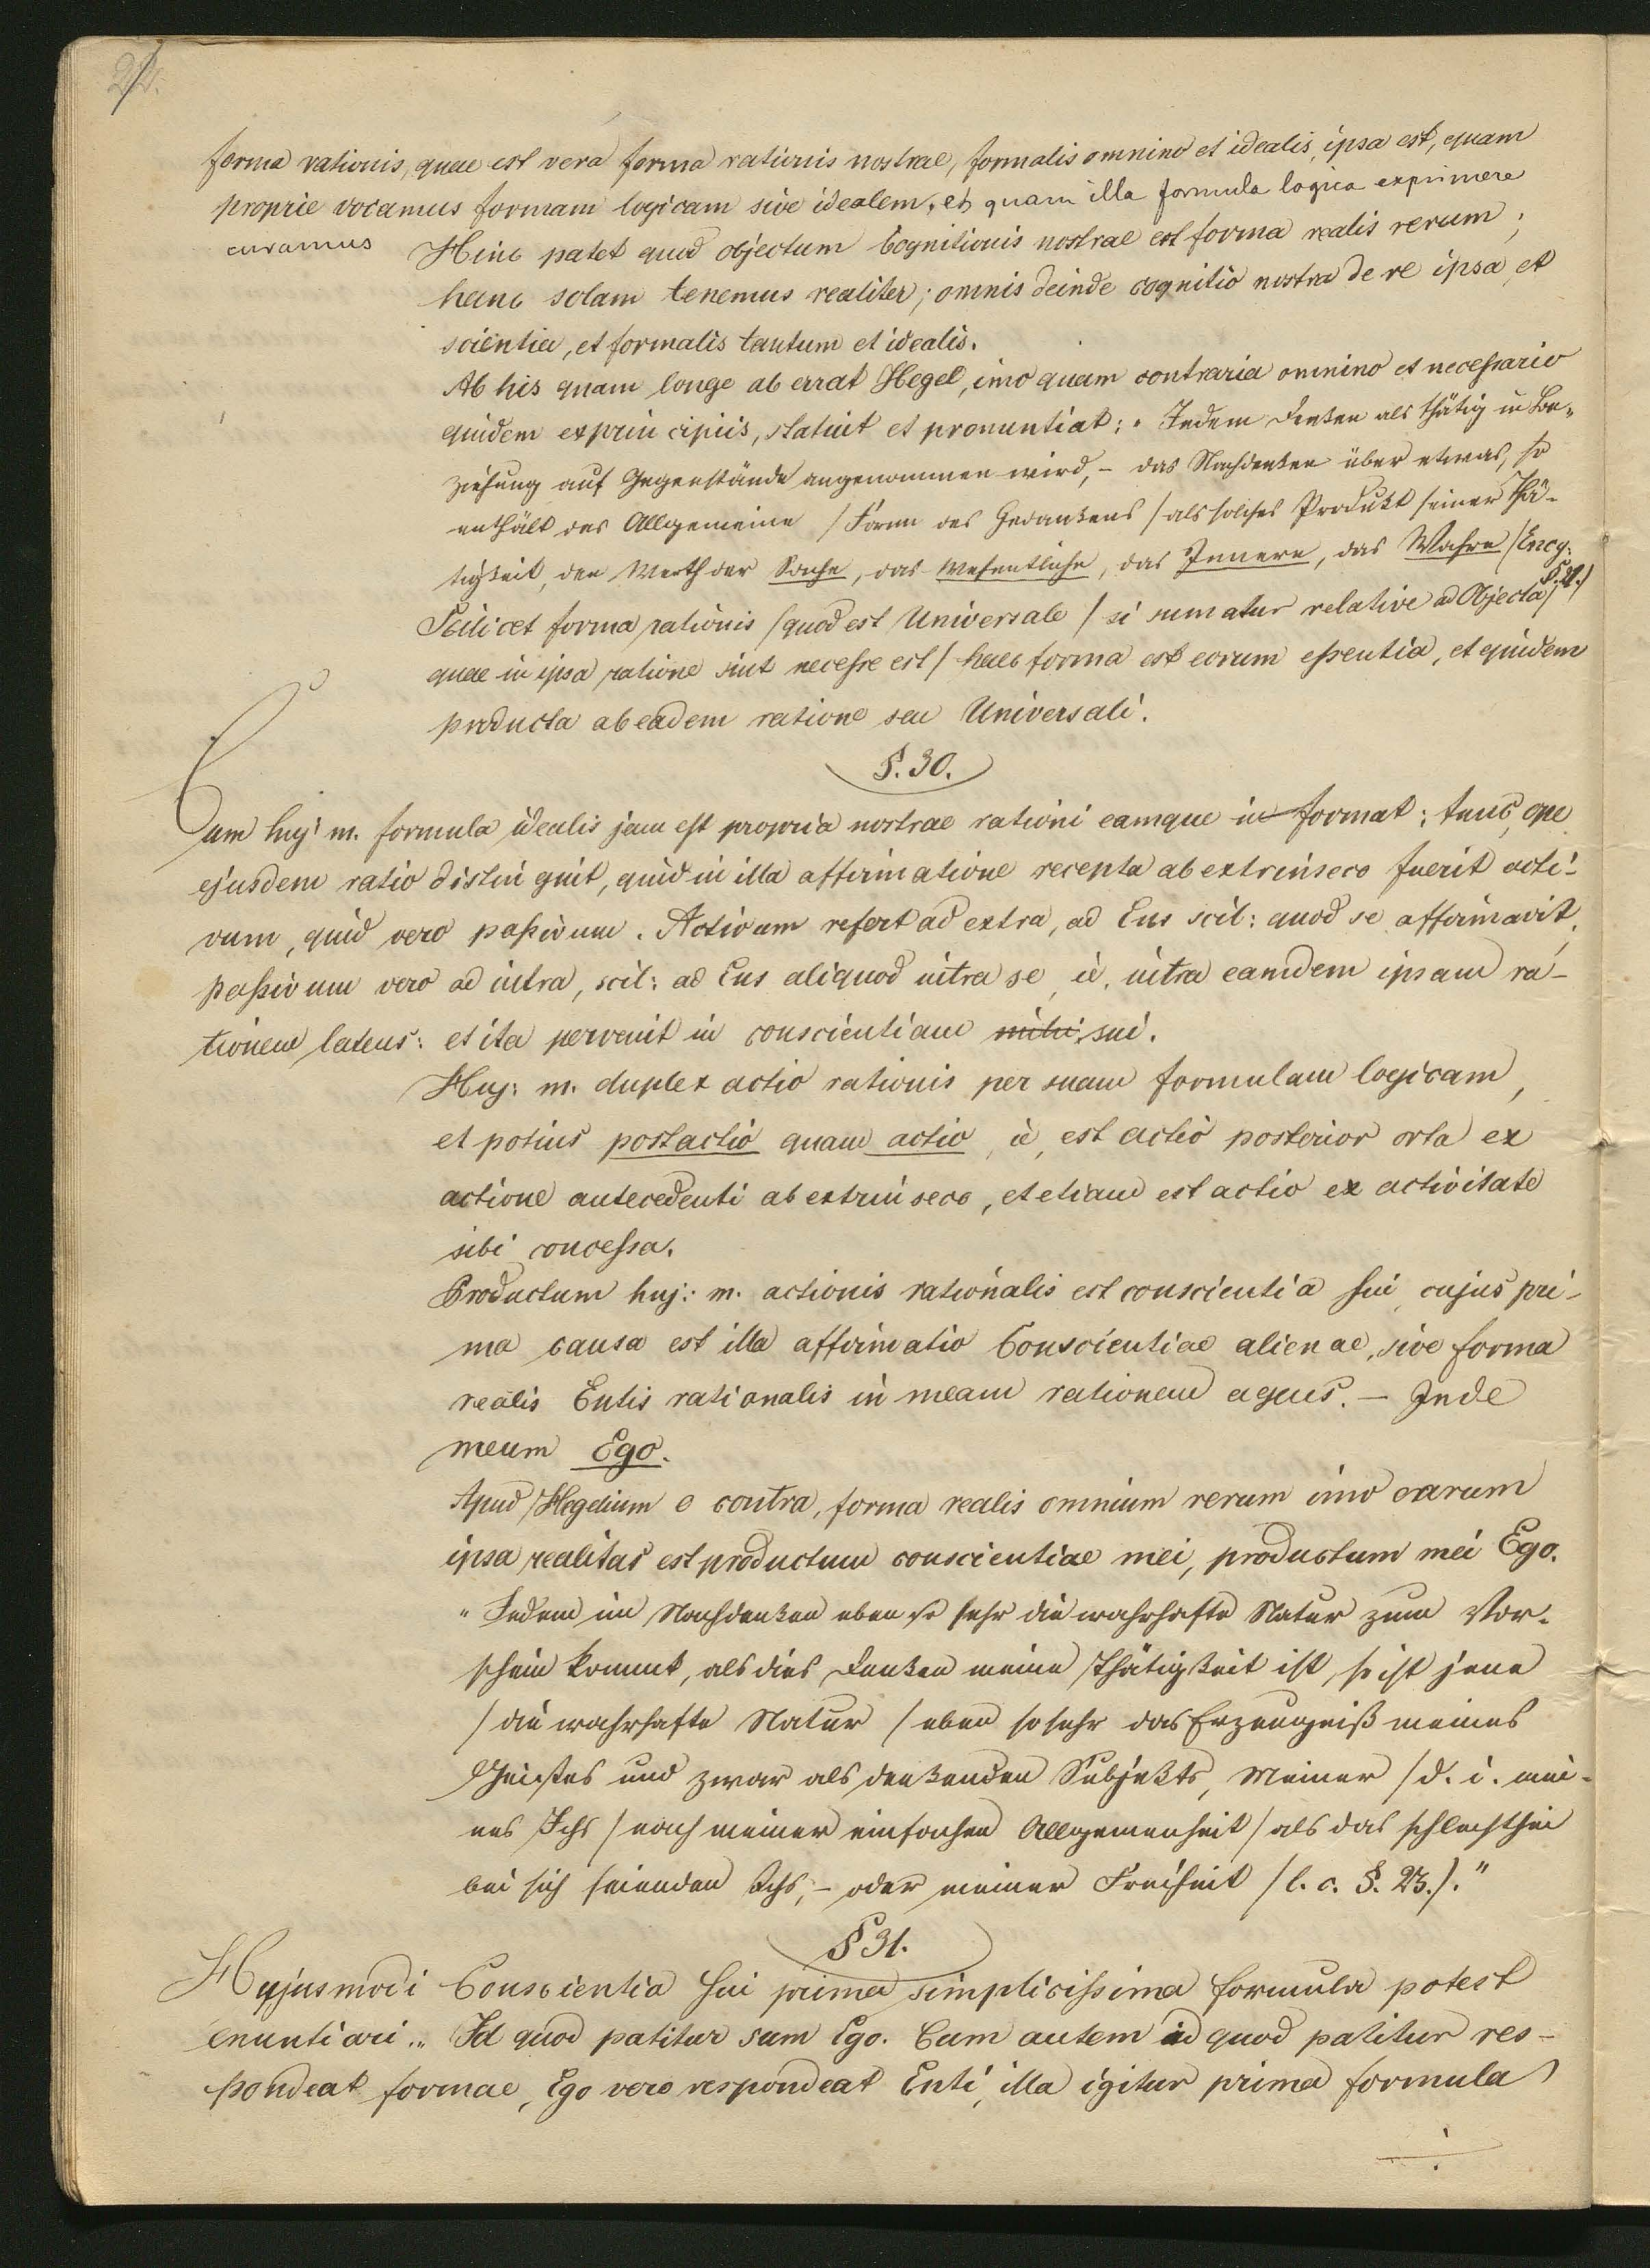 22.
forma rationis, quae est vera forma rationis nostrae, formalis omnino et idealis, ipsa est, quam
proprie vocamus formam logicam sive idealem, et quam illa formula logica exprimere
curamus
Hinc patet quod objectum Cognitionis nostrae est forma realis rerum;
hanc solam tenemus realiter; omnis deinde cognitio nostra de re ipsa, et
scientia, et formalis tantum et idealis.
Ab his quam longe ab errat Hegel, imo quam contraria omnino et necessario
quidem ex prin cipiis, statuit et pronuntiat: „Indem Denken als thätig in Be„
ziehung auf Gegenstände angenommen wird, – das Nachdenken über etwas, so
enthält das Allgemeine /Form des Gedankens/ als solches Produkt seiner Thä-
tigkeit, den Werth der Sache, das Wesentliche, das Innere, das Wahre /Ency:
§. 21./
Scilicet forma rationis /quod est Universale/ si sumatur relative ad Objecta/
quae in ipsa ratione sint necesse est/ haec forma est eorum essentia, et quidem
producta ab eadem ratione seu Universali.
§. 30.
Cum huj: m. formula idealis jam est propria nostrae rationi eamque in format: tunc, ope
ejusdem ratio distin guit, quid in illa affirmatione recepta ab extrinseco fuerit acti-
vum, quid vero passivum. Activum refert ad extra, ad Ens scil: quod se affirmavit,
passivum vero ad intra, scil: ad Ens aliquod intra se, ie. intra eamdem ipsam ra-
tionem latens: et ita pervenit in conscientiam sui.
Huj: m. duplex actio rationis per suam formulam logicam,
et potius postactio quam actio, ie, est actio posterior orta ex
actione antecedenti ab extrin seco, et etiam est actio ex activitate
sibi concessa.
Productum huj: m. actionis rationalis est conscientia sui, cujus pri-
ma causa est illa affirmatio Conscientiae alienae, sive forma
realis Entis rationalis in meam rationem agens. – Inde
meum Ego.
Apud Hegelium e contra, forma realis omnium rerum imo earum
ipsa realitas est productum conscientiae mei, productum mei Ego.
„Indem im Nachdenken eben so sehr die wahrhafte Natur zum Vor-
schein kommt, als dies Denken meine Thätigkeit ist, so ist jene
/die wahrhafte Natur/ eben so sehr das Erzeugniß meines
Geistes und zwar als denkenden Subjekts, Meiner /d. i. mei-
nes Ichs/ nach meiner einfachen Allgemeinheit/ als das schlechthin
bei sich seienden Ichs, – oder meiner Freiheit /l. c. §. 23./."
§ 31.
Hujusmodi Conscientia sui prima simplicissima formula potest
enuntiari „Id quod patitur sum Ego. Cum autem id quod patitur res-
pondeat formae, Ego vero respondeat Enti, illa igitur prima formula